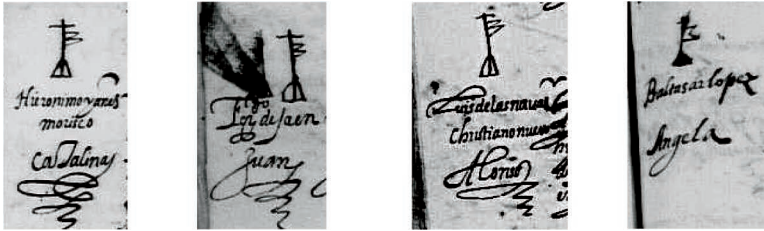 Hieronimo yanes
morisco
Catalina
de Jaen
Juan
Luis de las nauas
Christiano nueuo
Alonso
Baltasar lopez
Angela